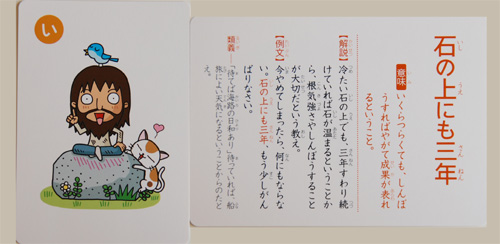 い
石の上にも三年
いし うえ さん ねん
意味 いくらつらくても、しんぼ
うすればやがて成果が表れ
るということ。
【解説】冷たい石の上でも、三年すわり続
けていれば石が温まるということか
ら、根気強さやしんぼうすること
が大切だという教え。
【例文】石の上にも三年、もう少しがん
ばりなさい。
今やめてしまったら、何にもならな
い。石の上にも三年、もう少しがん
ばりなさい。
類義―「待てば海路の日和あり」待っていれば、船
旅によい天気になるということからのたと
え。